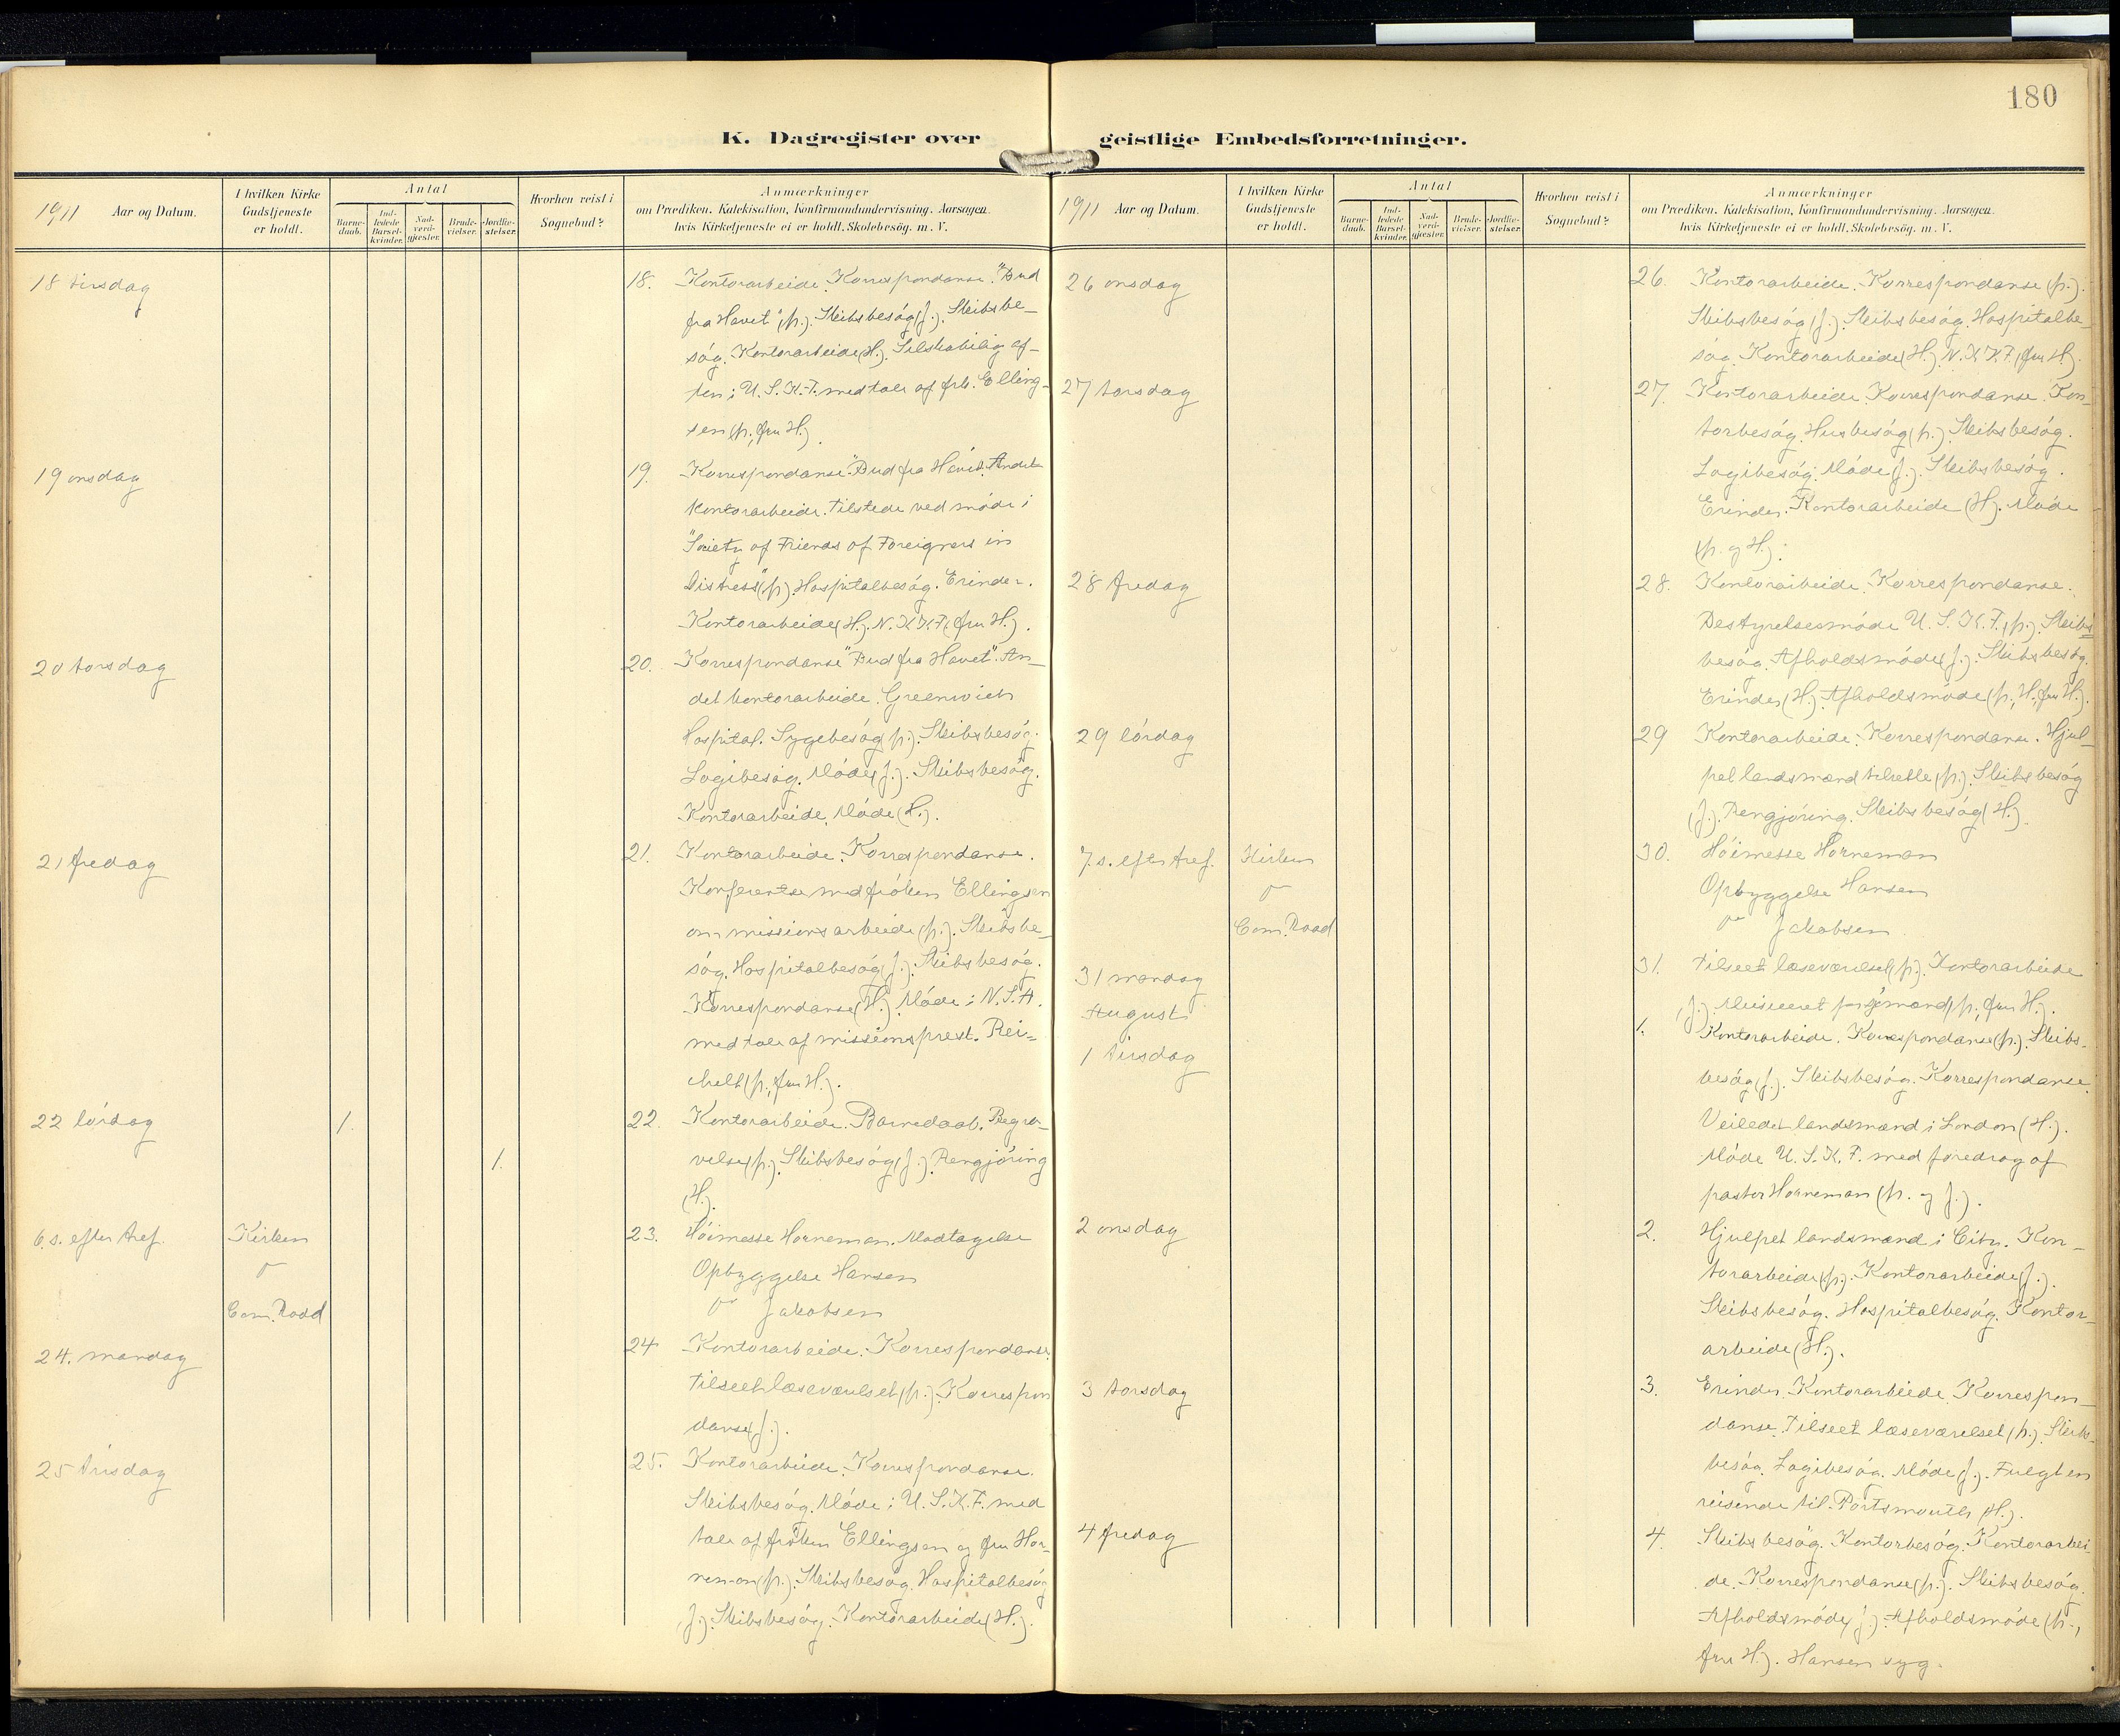 180
K. Dagregister over geistlige Embedsforretninger.
1911 Aar og Datum.
I hvilken Kirke Gudstjeneste er holdt.
Antal
Barnedaab.
Indledede Barselkvinder.
Nadverdgjæster.
Brudevielser.
Jordfæstelser.
Hvorhen reist i Sognebud?
Anmærkninger
om Prædiken, Katekisation, Konfirmandundervisning. Aarsagen,
hvis Kirketjeneste ei er holdt. Skolebesög. m. V.
18 tirsdag
18. Kontorarbeide. Korrespondanse. "Bud
fra Havet" (p.). Skibsbesög (J.). Skibsbe-
sög. Kontorarbeide (H.). Selskabelig af-
ten i U.S.K.F. med tale af frk. Elling-
sen (p., fru H.).
19 onsdag
19. Korrespondanse. "Bud fra Havet". Andet
kontorarbeide. Tilstede ved möde i
"Society of Friends of Foreigners in
Distress" (p.). Hospitalbesög. Erinder.
Kontorarbeide (H.). N.K.K.F. (fru H.).
20 torsdag
20. Korrespondanse "Bud fra Havet". An-
det kontorarbeide. Greenwich
Hospital. Sygebesög (p.). Skibsbesög.
Logibesög. Möde (J.). Skibsbesög.
Kontorarbeide. Möde (H.).
21 fredag
21. Kontorarbeide. Korrespondanse.
Konferentse med fröken Ellingsen
om missionsarbeide (p.). Skibsbe-
sög. Hospitalbesög (J.). Skibsbesög.
Korrespondanse (H.). Möde i N.S.A.
med tale af missionsprest. Rei-
chelt (p., fru H.).
22 lördag 1.
22. Kontorarbeide. Barnedaab. Begra-
1.
velse (p.). Skibsbesög (J.). Rengjöring
(H.).
6. s. efter tref. Kirken
23. Höimesse Horneman. Modtagelse
Opbyggelse Hansen
Com. Road
Jakobsen
24. mandag
24 Kontorarbeide. Korrespondanse.
Tilseet læseværelset (p.). Korrespon
danse (J.).
25 tirsdag
25. Kontorarbeide. Korrespondanse.
Skibsbesög. Möde i U.S.K.F. med
tale af fröken Ellingsen og fru Hor-
neman (p.). Skibsbesög. Hospitalbesög
(J.). Skibsbesög. Kontorarbeide (H.).
1911 Aar og Datum.
I hvilken Kirke Gudstjeneste er holdt.
Antal
Barnedaab.
Indledede Barselkvinder.
Nadverdgjæster.
Brudevielser.
Jordfæstelser.
Hvorhen reist i Sognebud?
Anmærkninger
om Prædiken, Katekisation, Konfirmandundervisning. Aarsagen,
hvis Kirketjeneste ei er holdt. Skolebesög. m. V.
26 onsdag
26. Kontorarbeide. Korrespondanse (p.).
Skibsbesög (J.). Skibsbesög. Hospitalbe-
sög. Kontorarbeide (H.). N.K.K.F. (fru H.).
27 torsdag
27. Kontorarbeide. Korrespondanse. Kon-
torbesög. Husbesög (p.). Skibsbesög.
Logibesög. Möde (J.). Skibsbesög.
Erinder. Kontorarbeide (H.). Möde
(p. og H.).
28 fredag
28. Kontorarbeide. Korrespondanse.
Bestyrelsesmöde U.S.K.F. (p.). Skibs
besög. Afholdsmöde (J.). Skibsbesög.
Erinder (H.). Afholdsmöde (p., H., fru H.).
29 lördag
29 Kontorarbeide. Korrespondanse. Hjul-
pet landsmænd tilrette (p.). Skibsbesög
(J.). Rengjöring. Skibsbesög (H.).
7. s. efter tref. Kirken
30. Höimesse Horneman
Opbyggelse Hansen
Com. Road
Jakobsen
31 mandag
31. Tilseet læseværelset (p.). Kontorarbeide
(J.). Musiceret for sjömænd (p., fru H.).
August
1 tirsdag
1. Kontorarbeide. Korrespondanse (p.). Skibs-
besög (J.). Skibsbesög. Korrespondanse.
Veiledet landsmænd i London (H.).
Möde U.S.K.F. med foredrag af
pastor Horneman (p. og J.).
2 onsdag
2. Hjulpet landsmænd i City. Kon-
torarbeide (p.). Kontorarbeide (J.).
Skibsbesög. Hospitalbesög. Kontor-
arbeide (H.).
3 torsdag
3. Erinder. Kontorarbeide. Korrespon-
danse. Tilseet læseværelset (p.). Skibs-
besög. Logibesög. Möde (J.). Fulgt en
reisende til Portsmouth (H.).
4 fredag
4. Skibsbesög. Kontorbesög. Kontorarbei-
de. Korrespondanse (p.). Skibsbesög.
Afholdsmöde (J.). Afholdsmöde (p.,
fru H.). Hansen syg.